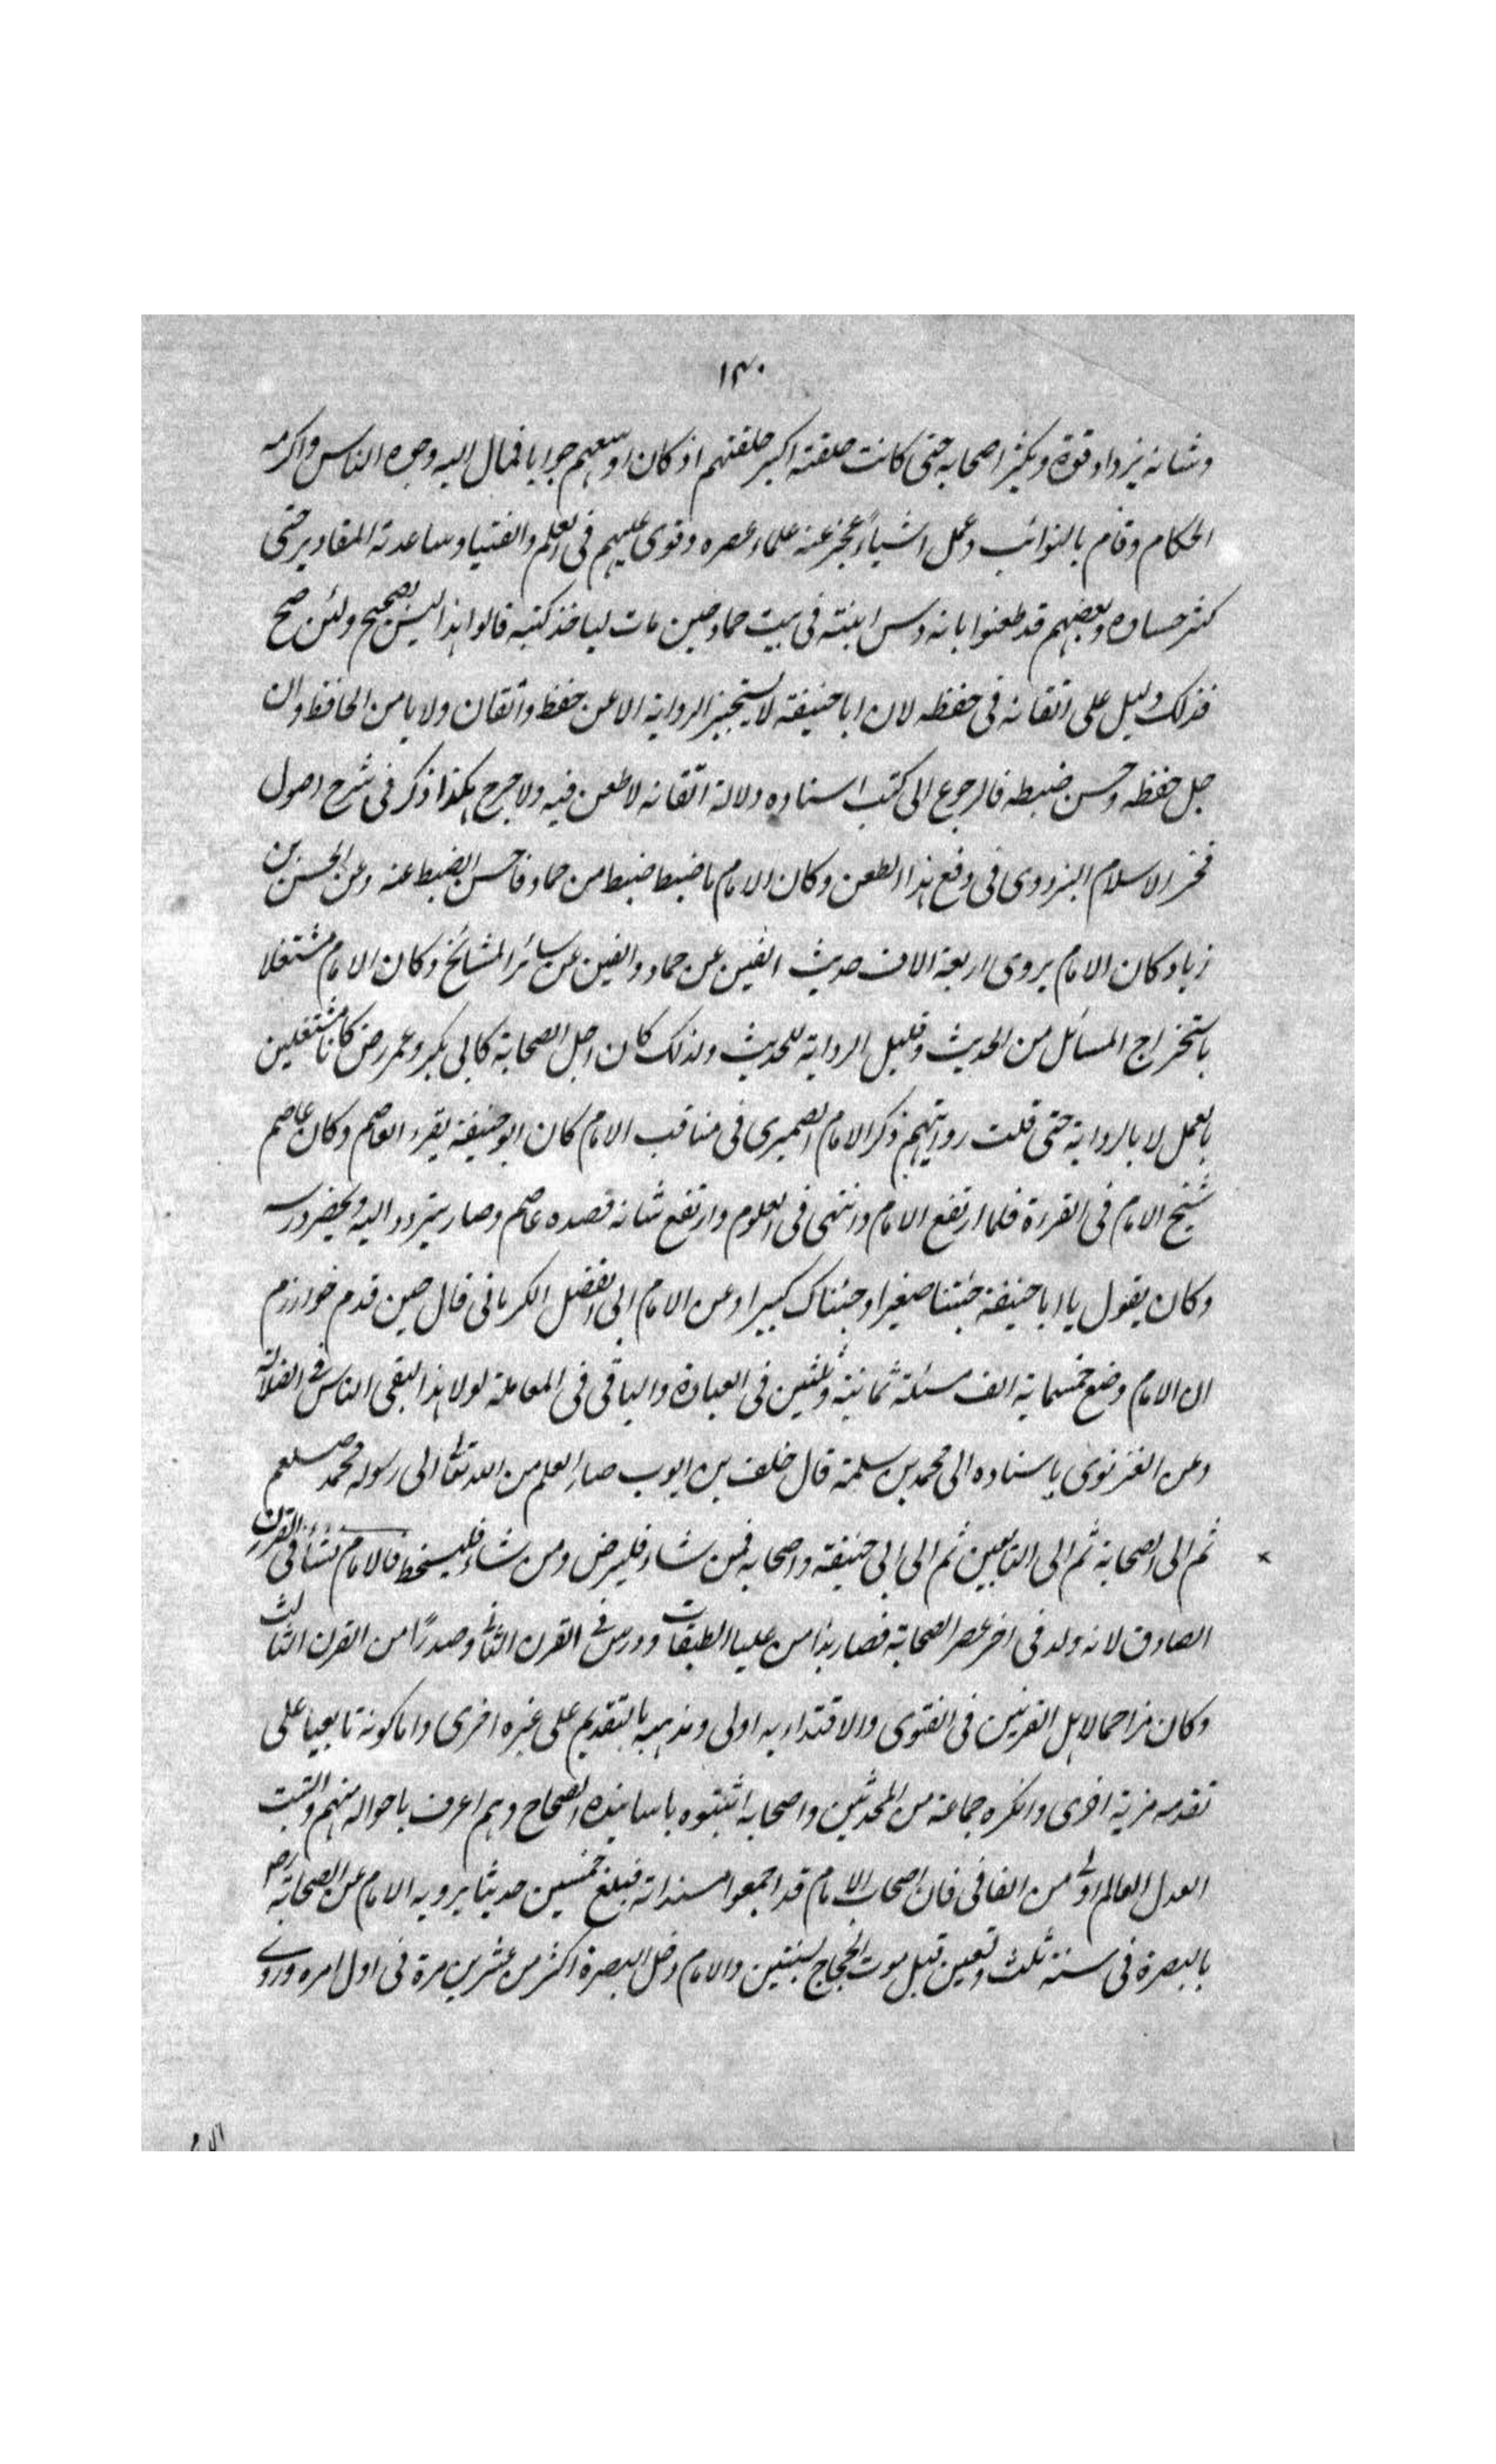 ١٣٠
وشانه يزداد قوة ويكثر اصحابه حتى كانت حلقته اكبر حلقتهم اذ كان اوسعهم جوابا فمال اليه وجوه الناس واكرمه
الحكام وقام بالنوائب وعمل اشياء عجز عنه علماء عصره وقوى عليهم فى العلم والفتيا وساعدته المقادير حتى
كثر حساده وبعضهم قد طعنوا بانه دس ابنته فى بيت حماد حين مات لياخذ كتبه قالوا هذا ليس بصحيح ولئن صح
فذلك دليل على اتقانه فى حفظه لان ابا حنيفة لا يستجيز الرواية الا عن حفظ واتقان ولا يامن الحافظ وان
جل حفظه وحسن ضبطه فالرجوع الى كتب استاده دلالة اتقانه لا طعن فيه ولا جرح هكذا ذكر فى شرح اصول
فخر الاسلام البزدوى فى دفع هذا الطعن وكان الامام ما ضبط ضبط من حماد فاحسن الضبط عنه وعن الحسن بن
زياد كان الامام يروى اربعة الاف حديث الفين عن حماد والفين عن سائر المشائخ وكان الامام مشتغلا
باستخراج المسائل من الحديث وقليل الرواية للحديث ولذلك كان اجل الصحابة كابى بكر وعمر رض كانا مشتغلين
بالعمل لا بالرواية حتى قلت روايتهم ذكر الامام الصميرى فى مناقب الامام كان ابو حنيفة يقرء العاصم وكان عاصم
شيخ الامام فى القرءة فلما ارتفع الامام وانتهى فى العلوم وارتفع شانه قصده عاصم وصار يتردد اليه ويحضر درسه
وكان يقول يا ابا حنيفة جئتنا صغيرا وجئناك كبيرا وعن الامام ابى الفضل الكرمانى قال حين قدم خوارزم
ان الامام وضع خمسماية الف مسئلة ثمانية وثلثين فى العبادة والباقى فى المعاملة لولا هذا لبقى الناس فى الضلالة
وعن الغزنوى باسناده الى محمد بن سلمة قال خلف بن ايوب صار العلم من الله تعالى الى رسوله محمد صلعم
ثم الى الصحابة ثم الى التابعين ثم الى ابى حنيفة واصحابه فمن شاء فليرض ومن شاء فليسخط فالامام نشأ فى القرن
الصادق لانه ولد فى اخر عصر الصحابة فصار بذا من عليا الطبقات ودرس فى القرن الثانى وصدرًا من القرن الثالث
وكان مزاحما لاهل القرنين فى الفتوى والاقتداء به اولى ومذهبه بالتقديم على غيره احرى واما كونه تابعيا على
تقدمه مزية اخرى وانكره جماعة من المحدثين واصحابه اثبتوه باسانيده الصحاح وهم اعرف باحواله منهم والثبت
العدل العالم اولى من النافى فان اصحاب الامام قد اجمعوا مسنداته فبلغ خمسين حديثا يرويه الامام عن الصحابة رض
بالبصرة فى سنة ثلث وتسعين قبل موت الحجاج بسنتين والامام دخل البصرة اكثر من عشرين مرة فى اول امره وروى